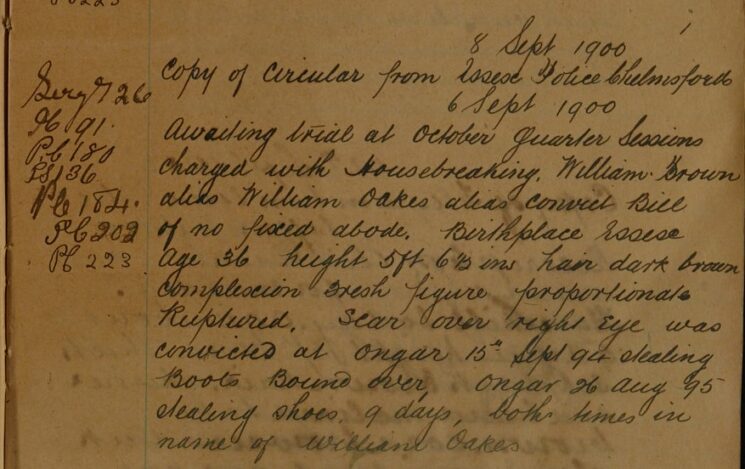 8 Sept 1900
Copy of Circular from Essex Police Chelmsford
6 Sept 1900
Awaiting trial at October Quarter Sessions
charged with Housebreaking. William Brown
alias William Oakes alias Convict Bill
of no fixed abode. Birthplace Essex
age 36 height 5ft 6½ ins hair dark brown
complexion Fresh figure proportionate
Ruptured. Scar over right Eye was
convicted at Ongar 15th Sept 94 stealing
Boots Bound over, Ongar 26 Aug 95
stealing shoes 9 days, both times in
name of William Oakes
Sergt 26
Pc 91.
Pc 180
PS 36
Pc 184.
Pc 202
Pc 223